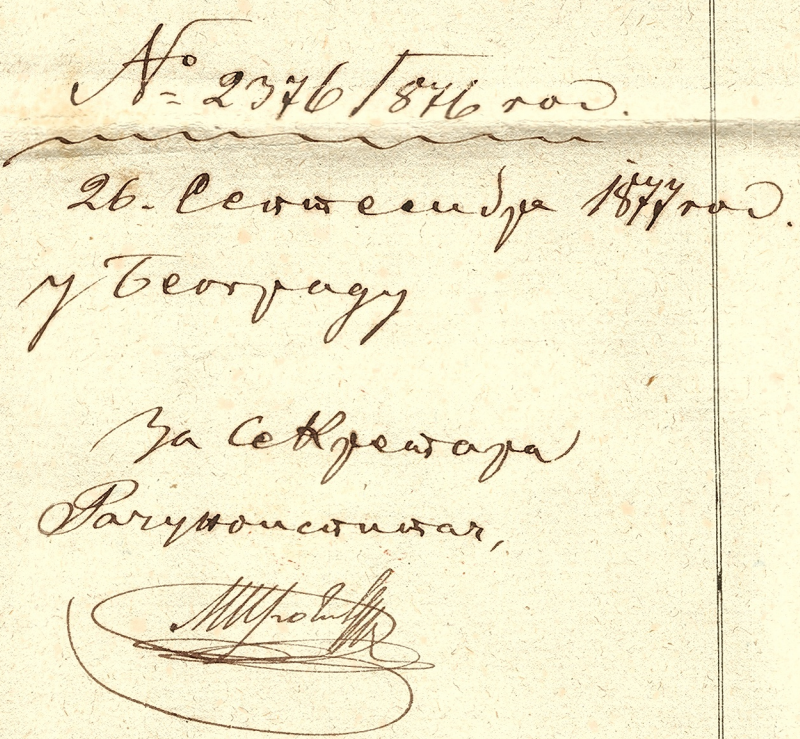 № 2376/876 год.
26. Септембра 1877 год.
у Београду
За Секретара
Рачуноиспитач,